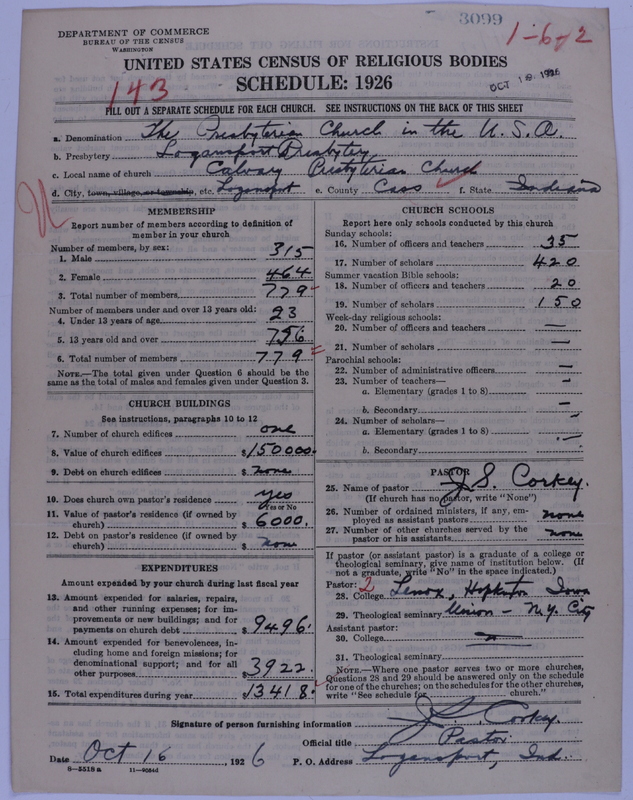 3099
DEPARTMENT OF COMMERCE
BUREAU OF THE CENSUS
WASHINGTON
1-6-2
UNITED STATES CENSUS OF RELIGIOUS BODIES
SCHEDULE: 1926
OCT 18 1926
143
FILL OUT A SEPARATE SCHEDULE FOR EACH CHURCH. SEE INSTRUCTIONS ON THE BACK OF THIS SHEET
a. Denomination The Presbyterian Church in the U.S.A.
b. Presbytery Logansport Presbytery
c. Local name of church Calvary Presbyterian Church
d. City, town, village, or township, etc. Logansport e. County Cass f. State Indiana
MEMBERSHIP
Report number of members according to definition of
member in your church
Number of members, by sex:
1. Male 315
2. Female 464
3. Total number of members 779
Number of members under and over 13 years old:
4. Under 13 years of age 23
5. 13 years old and over 756
6. Total number of members 779
NOTE.—The total given under Question 6 should be the
same as the total of males and females given under Question 3.
CHURCH BUILDINGS
See instructions, paragraphs 10 to 12
7. Number of church edifices one
8. Value of church edifices $150000.
9. Debt on church edifices $ none
10. Does church own pastor's residence yes
Yes or No
11. Value of pastor's residence (if owned by
church) $ 6000.
12. Debt on pastor's residence (if owned by
church) $ none
EXPENDITURES
Amount expended by your church during last fiscal year
13. Amount expended for salaries, repairs,
and other running expenses; for im-
provements or new buildings; and for
payments on church debt $ 9496.
14. Amount expended for benevolences, in-
cluding home and foreign missions; for
denominational support; and for all
other purposes $ 3922.
15. Total expenditures during year $ 13418.
CHURCH SCHOOLS
Report here only schools conducted by this church
Sunday schools:
16. Number of officers and teachers 35
17. Number of scholars 420
Summer vacation Bible schools:
18. Number of officers and teachers 20
19. Number of scholars 150
Week-day religious schools:
20. Number of officers and teachers —
21. Number of scholars —
Parochial schools:
22. Number of administrative officers —
23. Number of teachers— —
a. Elementary (grades 1 to 8)
b. Secondary —
24. Number of scholars— —
a. Elementary (grades 1 to 8)
b. Secondary —
PASTOR
25. Name of pastor J. S. Corkey.
(If church has no pastor, write "None")
26. Number of ordained ministers, if any, em-
ployed as assistant pastors none
27. Number of other churches served by the
pastor or his assistants none
If pastor (or assistant pastor) is a graduate of a college or
theological seminary, give name of institution below. (If
not a graduate, write "No" in the space indicated.)
Pastor: 2
28. College Lenox, Hopkinton Iowa
29. Theological seminary Union - N.Y. City
Assistant pastor:
30. College
31. Theological seminary
NOTE.—Where one pastor serves two or more churches,
Questions 28 and 29 should be answered only on the schedule
for one of the churches; on the schedules for the other churches,
write "See schedule for church."
Signature of person furnishing information J. S. Corkey.
Official title Pastor.
Date Oct 16, 1926 P. O. Address Logansport, Ind.
8—5518 a 11—9684d